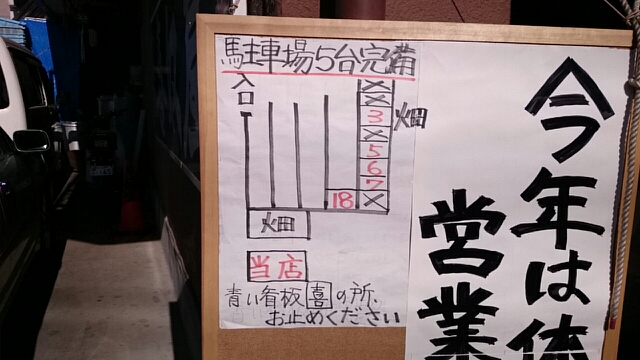 駐車場5台完備
入口
×
×
3
畑
×
5
6
7
18 ×
畑
当店
青い看板喜の所、
お止めください
今年は休
営業